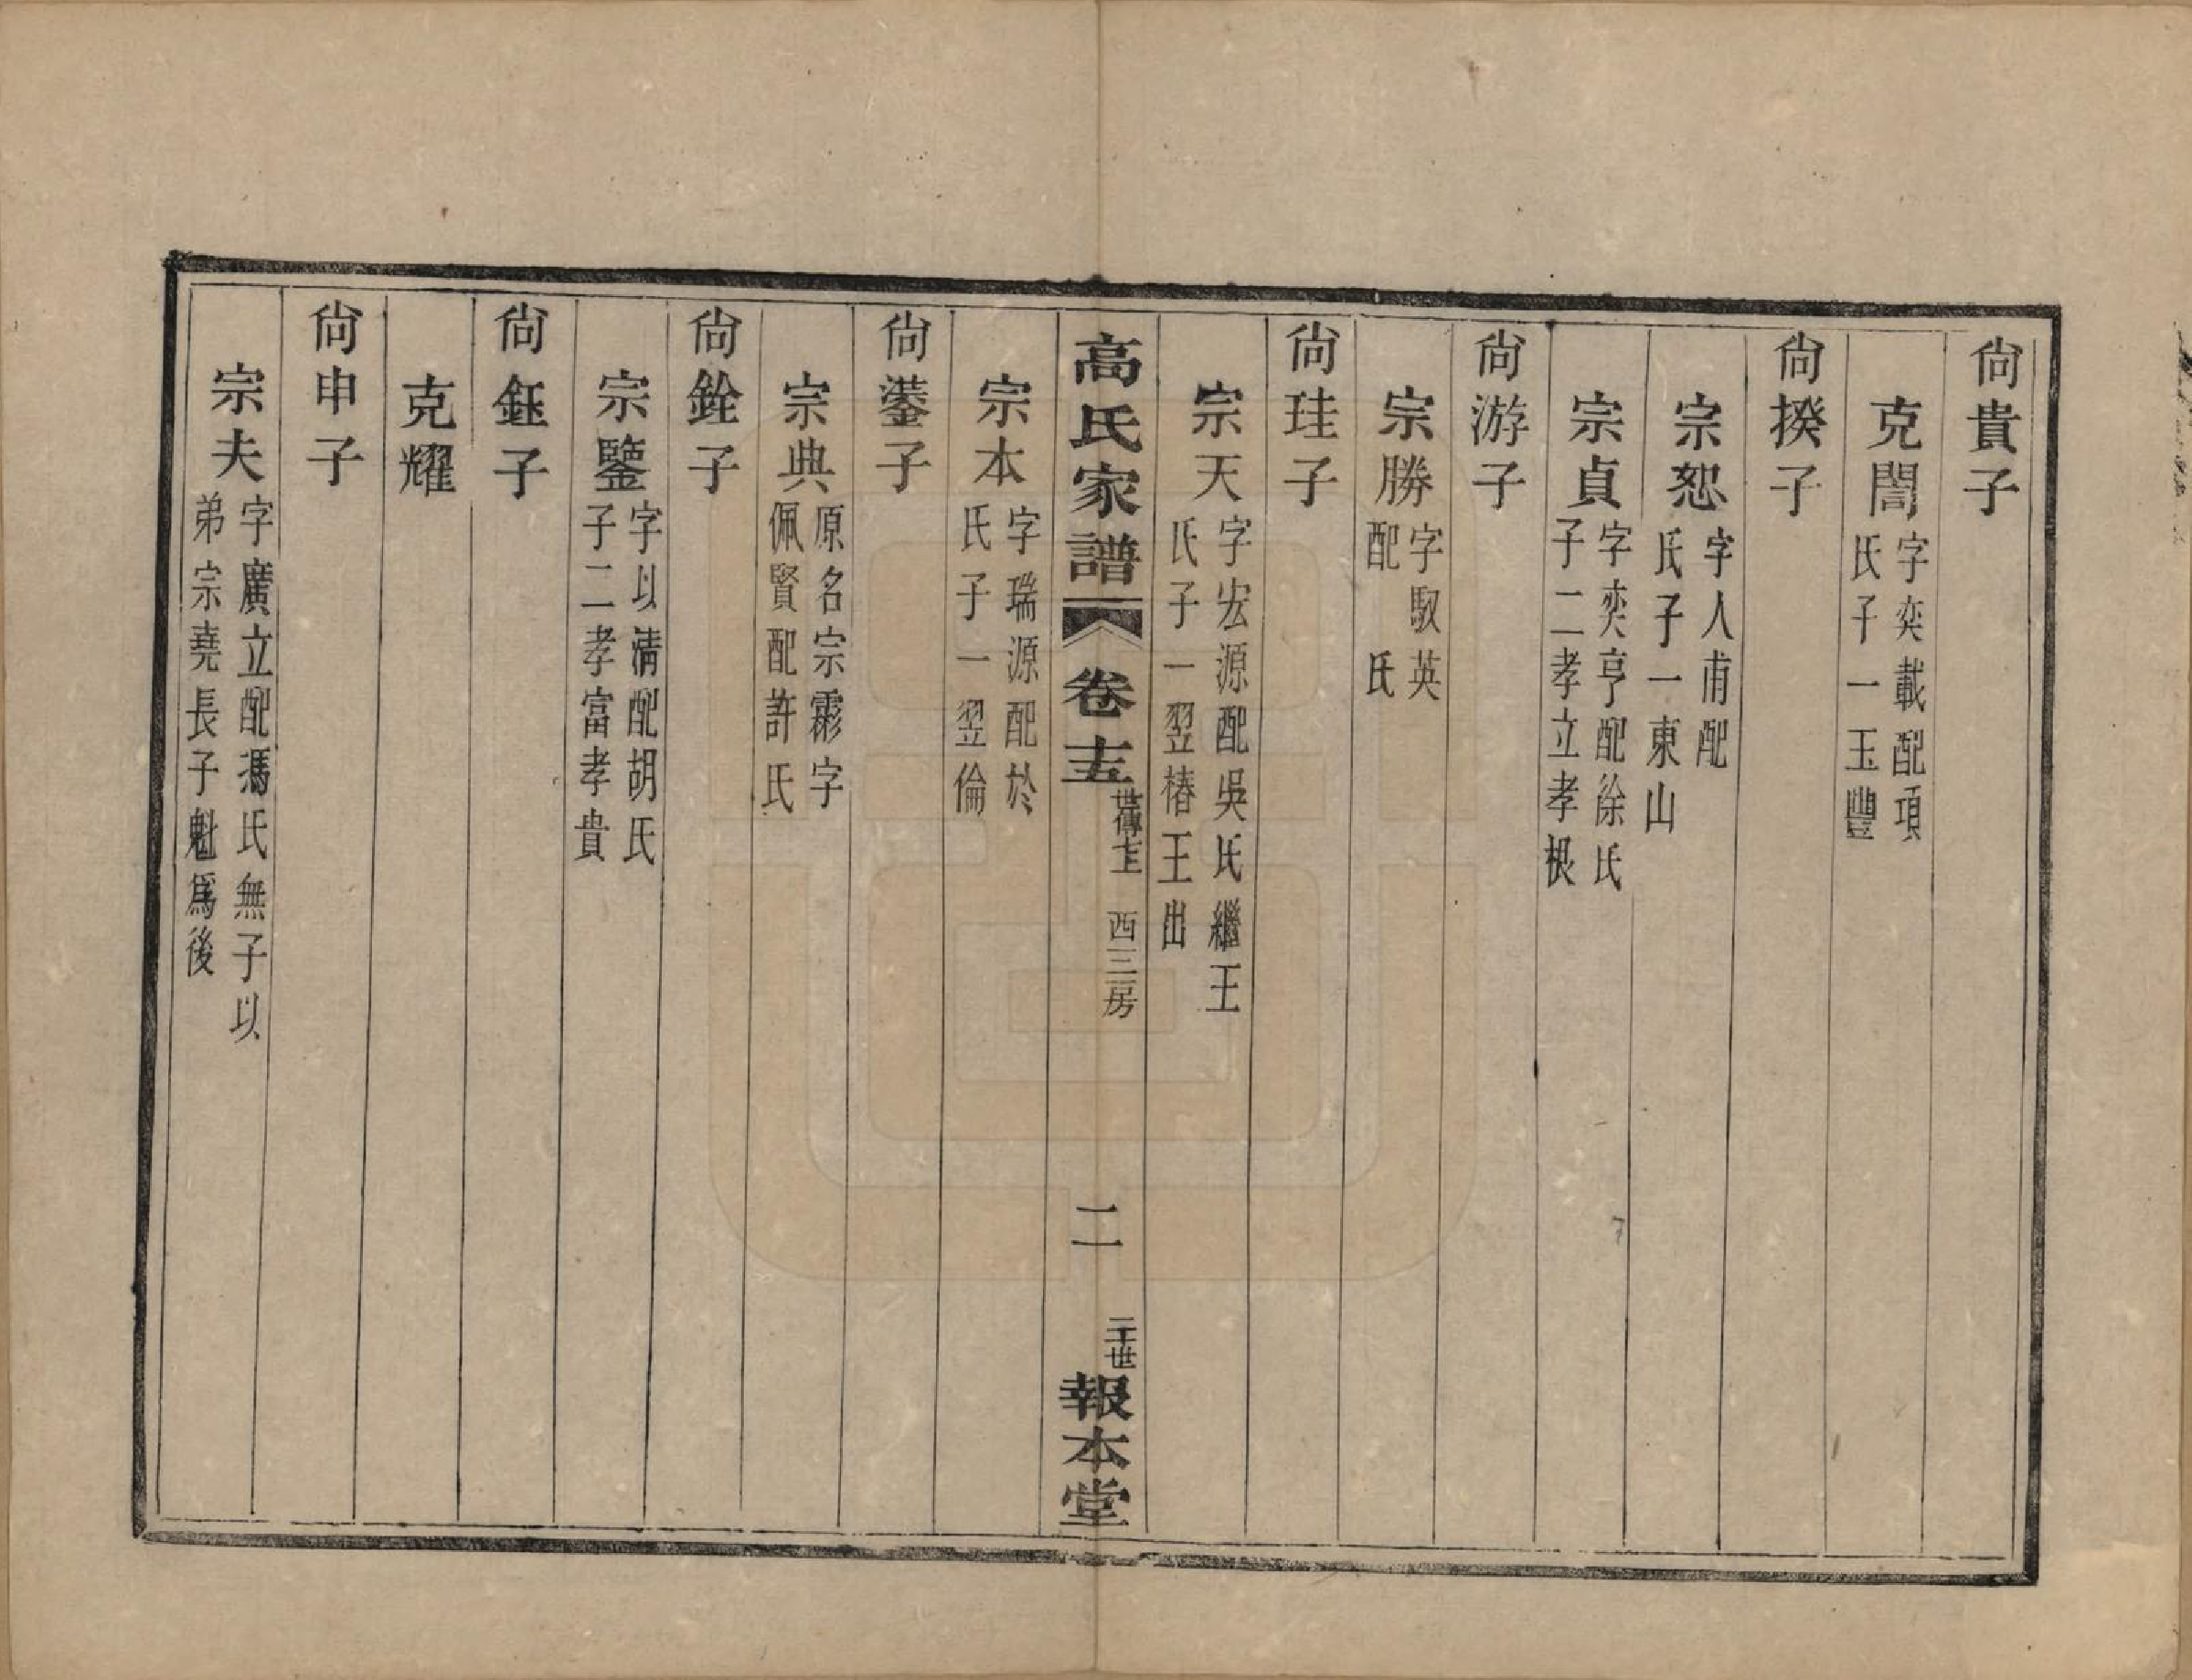 尙貴子
克誾
字奕載配項
氏子一玉豐
尙揆子
宗恕
字人甫配
氏子一東山
宗貞
字奕亨配徐氏
子二孝立孝根
尙游子
宗勝
字馭英
配　氏
尙珪子
宗天
字宏源配吳氏繼王
氏子一翌椿王出
高氏家譜
卷十五
世傳十五
西三房
二
二十世
報本堂
宗本
字瑞源配於
氏子一翌倫
尙鋈子
宗典
原名宗霦字
佩賢配許氏
尙銓子
宗鑒
字以清配胡氏
子二孝富孝貴
尙鈺子
克耀
尙申子
宗夫
字廣立配馮氏無子以
弟宗堯長子魁爲後